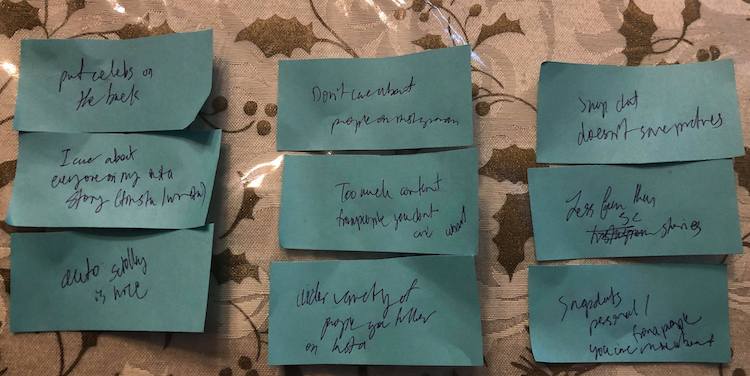 put celebs on
the back
I care about
everyone on my insta
story (finsta /
auto scrolling
is nice
Don't care about
people on instagram
Too much content
from people you dont
care about
Wider variety of
people you follow
on insta
Snap chat
doesn't save pictures
Less fun than
sc
Instagram stories
Snapchats
personal /
from people
you care more about